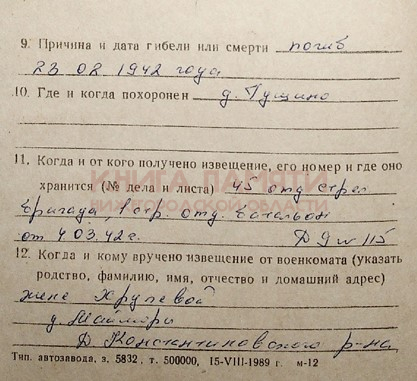 9. Причина и дата гибели или смерти погиб
23 02 1942 года
10. Где и когда похоронен д. Гущино
КНИГА ПАМЯТИ
НИЖЕГОРОДСКОЙ ОБЛАСТИ
11. Когда и от кого получено извещение, его номер и где оно
хранится (№ дела и листа) 45 отд стрел
бригада, 1 стр. отд. батальон
от 4 03.42 г. Д 9 115
12. Когда и кому вручено извещение от военкомата (указать
родство, фамилию, имя, отчество и домашний адрес)
жене Хрулевой
д.
Д Константиновского р-на,
Тип. автозавода, з. 5832, т. 500000, 15-VIII-1989 г. м-12